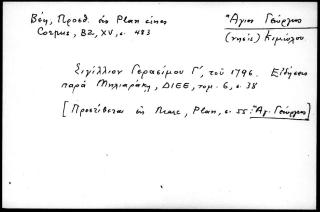 Βέη, Προσθ. εἰς Plan eines
Corpus, BZ, XV, σ. 483
Ἅγιος Γεώργιος
(νησίς) Κιμώλου.
Σιγίλλιον Γερασίμου Γ', τοῦ 1796. Εἴδησις
παρὰ Μηλιαράκη, ΔΙΕΕ, τομ. 6, σ. 38
[Προστίθεται εἰς Marc, Plan, σ. 55: Ἁγ. Γεώργιος]